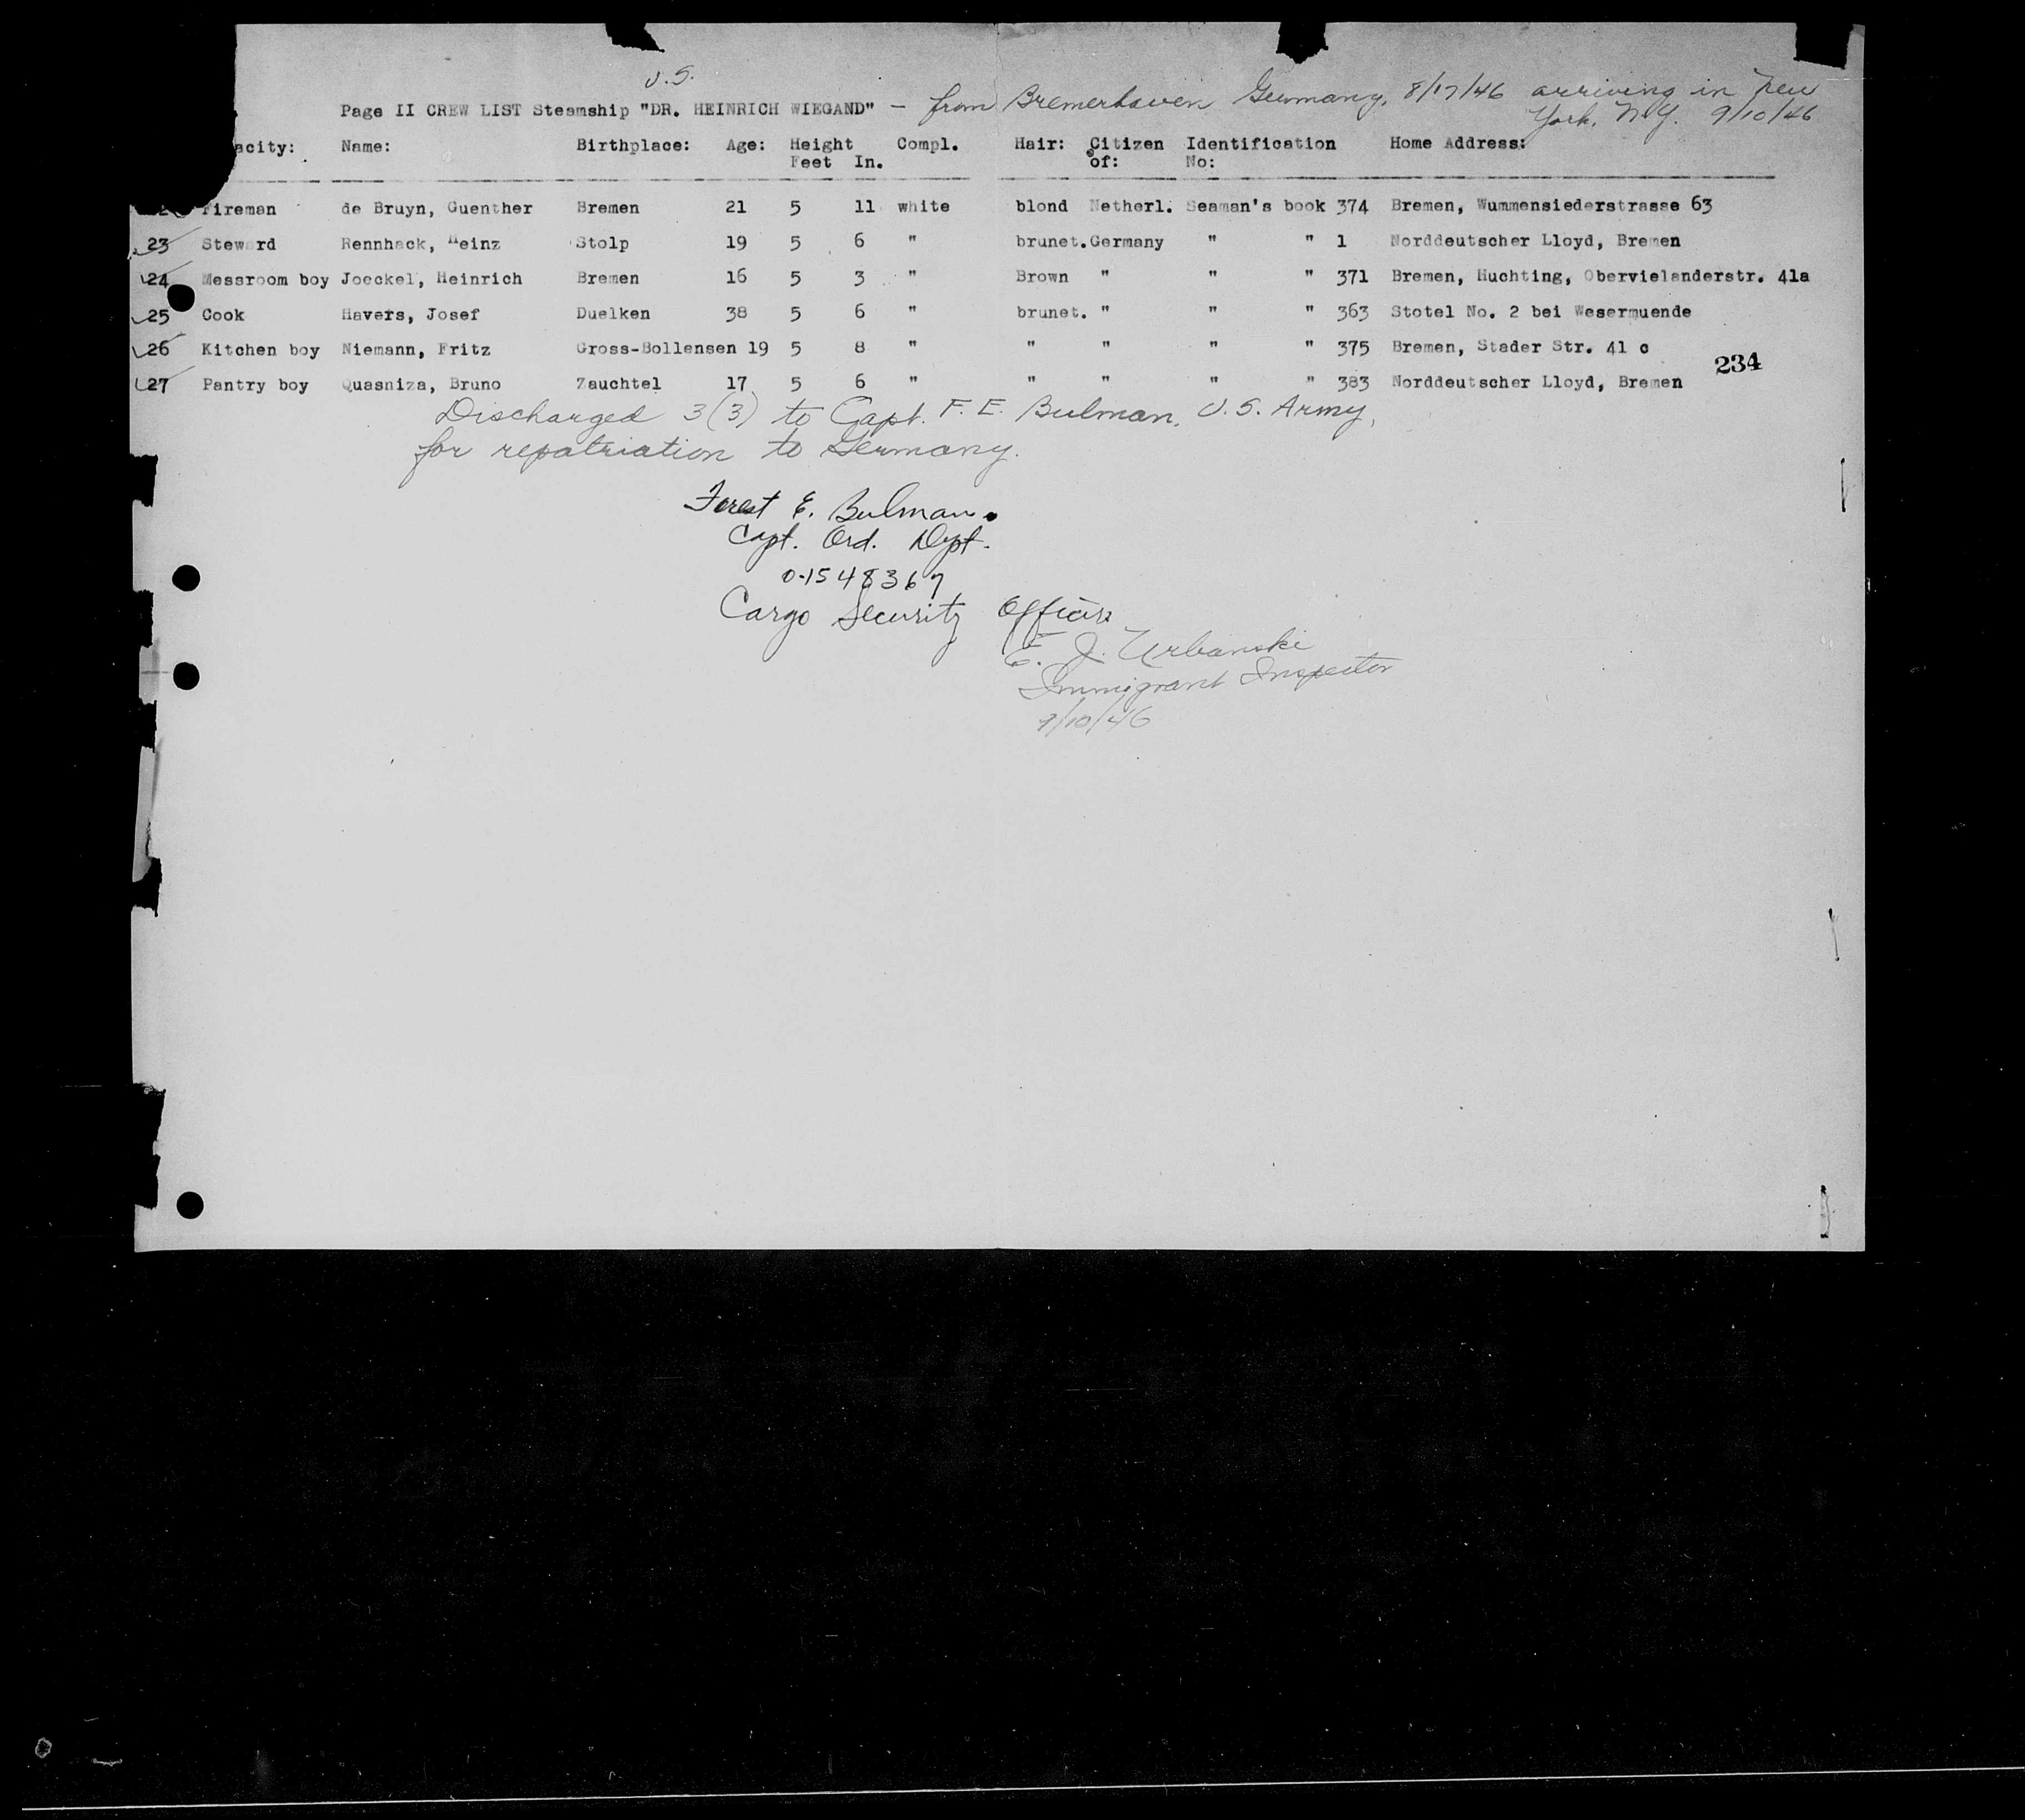 U.S.
Page II CREW LIST Steamship "DR. HEINRICH WIEGAND" - from Bremerhaven Germany, 8/17/46 arriving in New
York, N.Y. 9/10/46
acity: Name: Birthplace: Age: Height Compl. Hair: Citizen Identification Home Address:
Feet In. of: No:
Fireman de Bruyn, Guenther Bremen 21 5 11 white blond Netherl. Seaman's book 374 Bremen, Wummensiederstrasse 63
23 Steward Rennhack, Heinz Stolp 19 5 6 " brunet. Germany " " 1 Norddeutscher Lloyd, Bremen
24 Messroom boy Joeckel, Heinrich Bremen 16 5 3 " Brown " " " 371 Bremen, Huchting, Obervielanderstr. 41a
25 Cook Havers, Josef Duelken 38 5 6 " brunet. " " " 363 Stotel No. 2 bei Wesermuende
26 Kitchen boy Niemann, Fritz Gross-Bollensen 19 5 8 " " " " " 375 Bremen, Stader Str. 41 c
234
27 Pantry boy Quasniza, Bruno Zauchtel 17 5 6 " " " " " 383 Norddeutscher Lloyd, Bremen
Discharged 3(3) to Capt. F. E. Bulman, U.S. Army,
for repatriation to Germany.
Forest E. Bulman.
Capt. Ord. Dept.
0-1548367
Cargo Security Officer
E. J. Urbanski
Immigrant Inspector
9/10/46